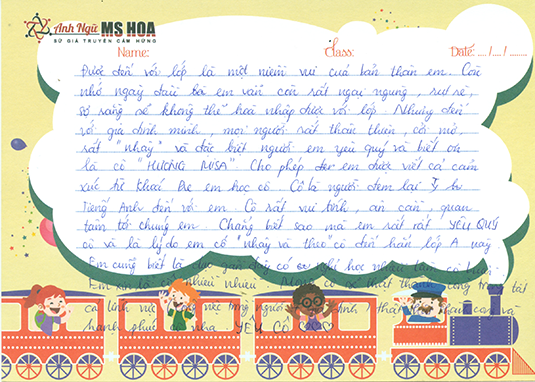 Anh Ngữ MS HOA
SỨ GIẢ TRUYỀN CẢM HỨNG
Name: Class: Date: ..../..../.......
Được đến với lớp là một niềm vui của bản thân em. Còn
nhớ ngày đầu em vẫn còn rất ngại ngùng, rụt rè,
sợ rằng sẽ không thể hoà nhập được với lớp. Nhưng đến
với gia đình mình, mọi người rất thân thiện, cởi mở,
rất "nhây" và đặc biệt người em yêu quý và biết ơn
là cô "HUONG MISA". Cho phép em được viết cả cảm
xúc từ khai Pre em học cô. Cô là người đem lại
Tiếng Anh đến với em. Cô rất vui tính, ân cần, quan
tâm tới chúng em. Chẳng biết sao mà em rất rất YÊU QUÝ
cô và là lý do em cố "nhây và theo" cô đến hẳn lớp A này.
Em cũng biết là gần đây cô nhiều
Em xin lỗi cô nhiều nhiều. Mong cô sẽ thật thành công trong tất
cả lĩnh vực
hạnh phúc cô nha. YÊU CÔ